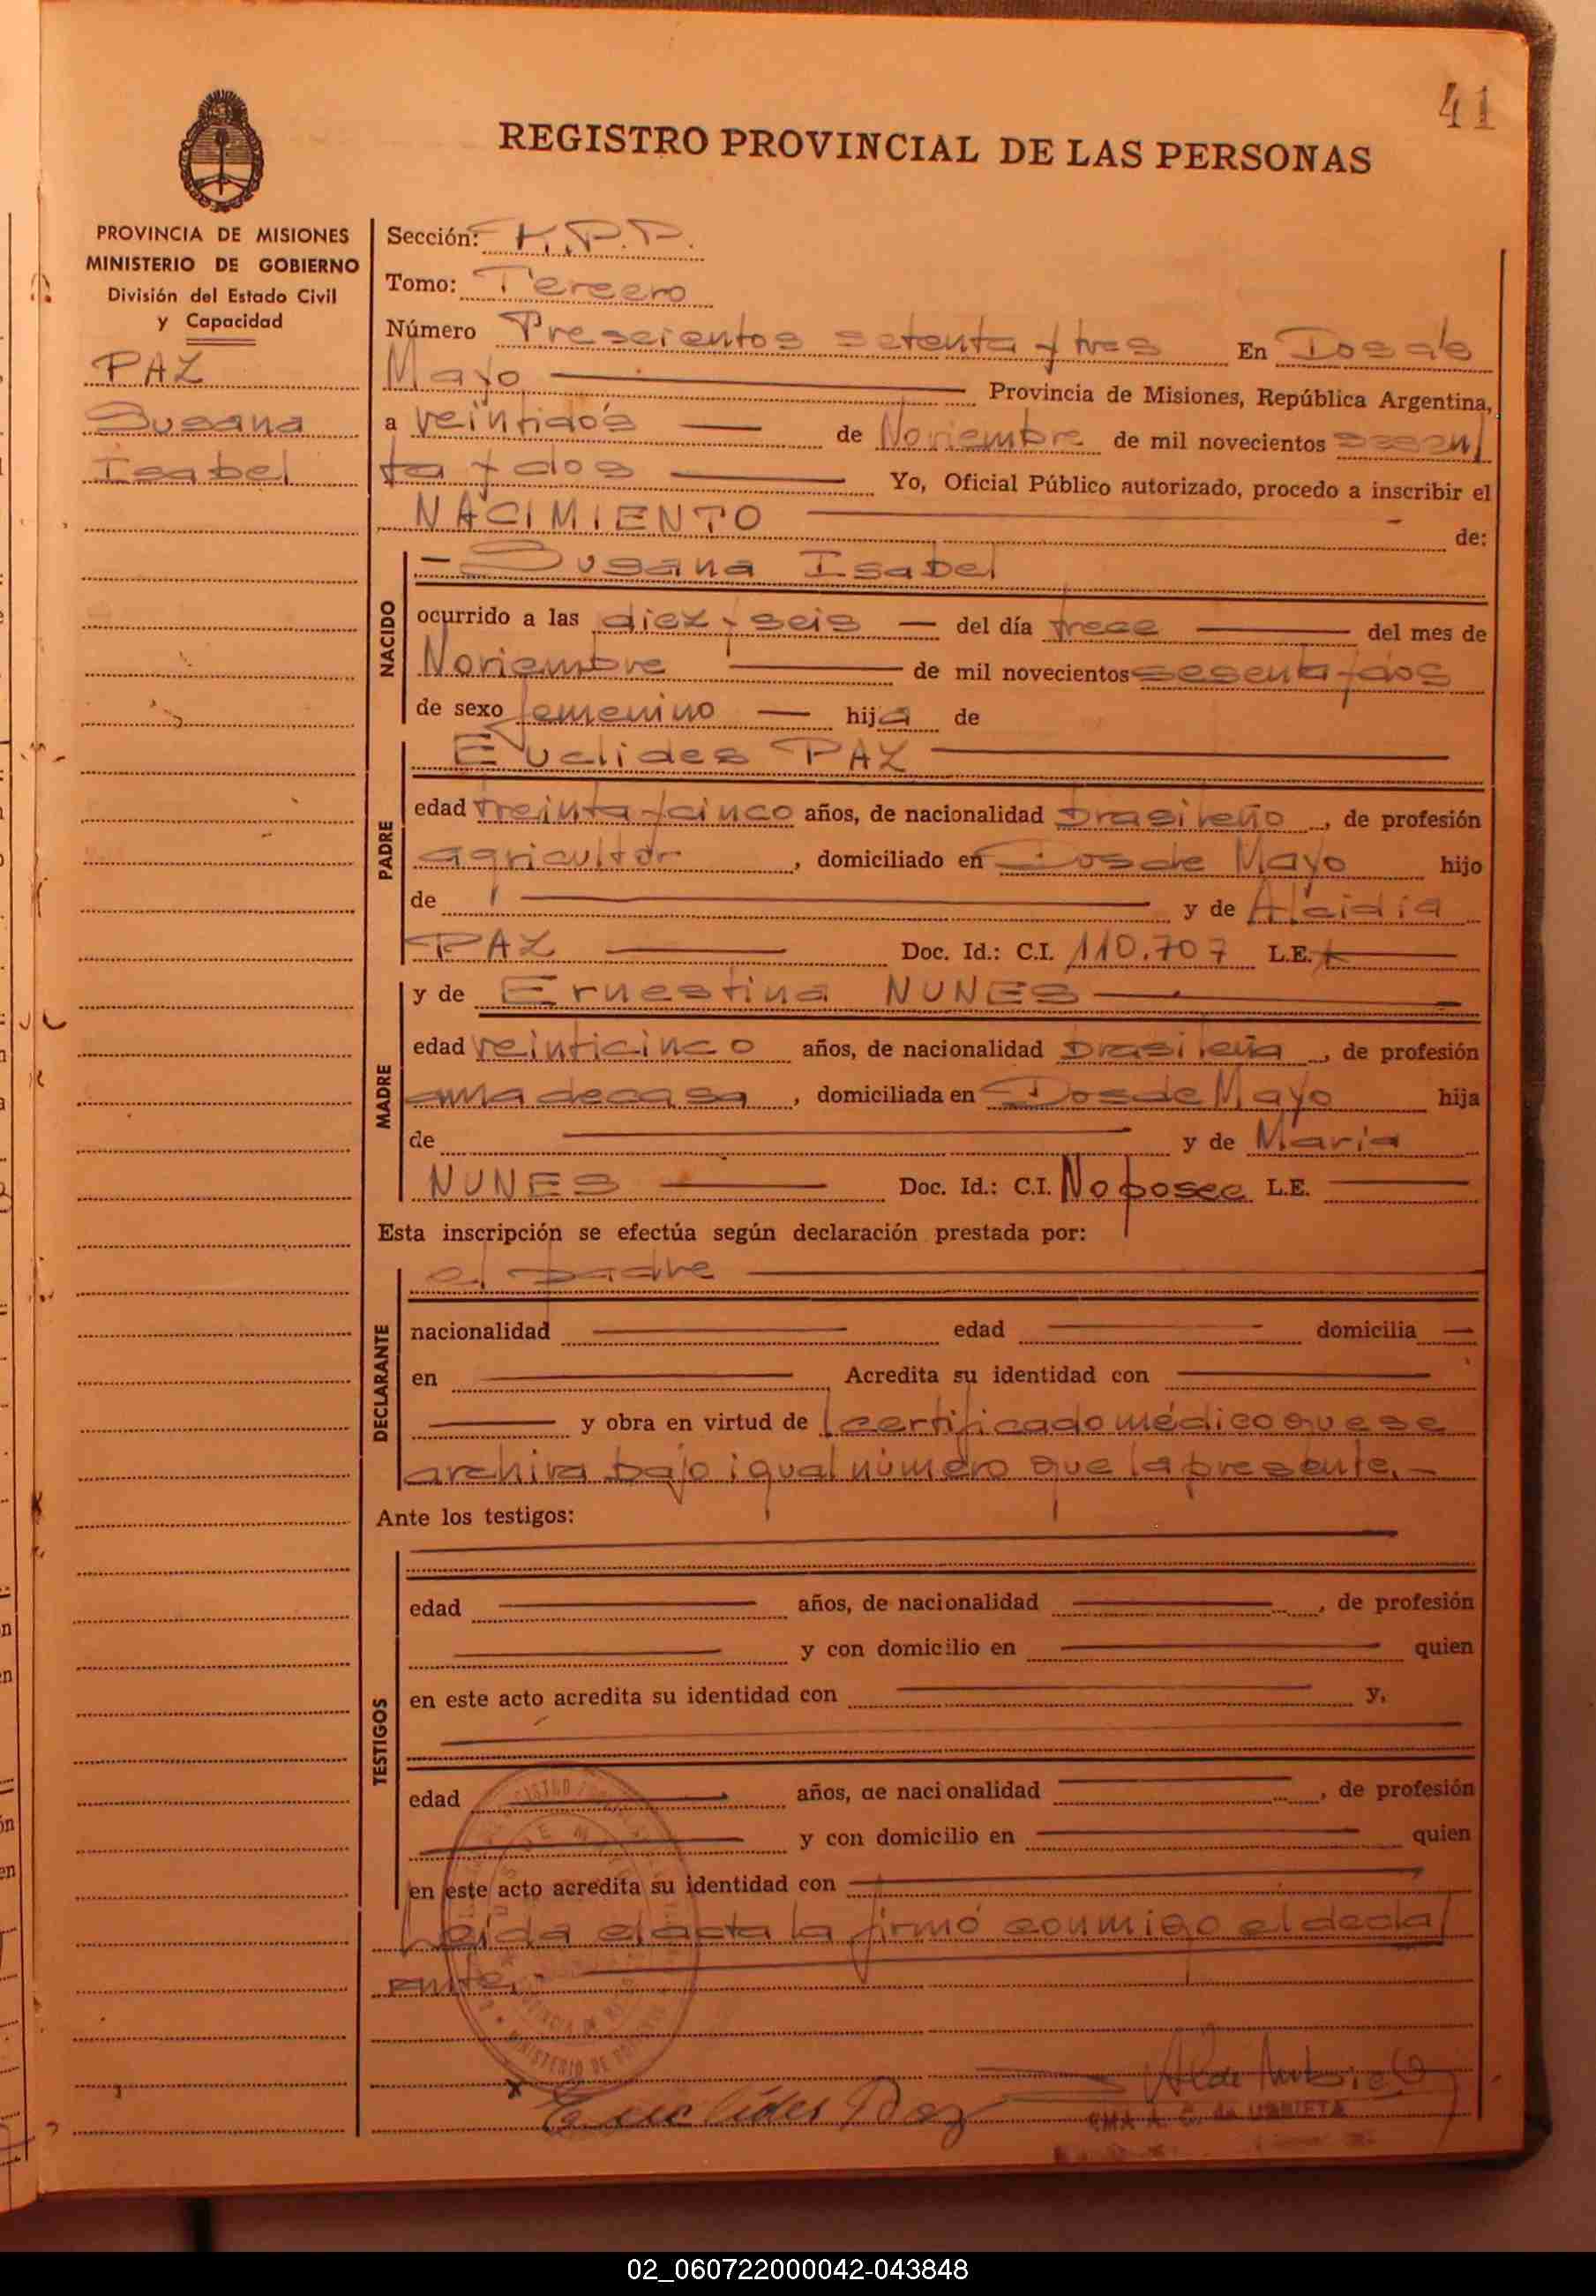 41
REGISTRO PROVINCIAL DE LAS PERSONAS
PROVINCIA DE MISIONES
MINISTERIO DE GOBIERNO
División del Estado Civil
y Capacidad
PAZ
Susana
Isabel
Sección: K.P.P.
Tomo: Tercero
Número Trescientos setenta y tres En Dos de
Mayo Provincia de Misiones, República Argentina,
a veintidós de Noviembre de mil novecientos sesen
ta y dos Yo, Oficial Público autorizado, procedo a inscribir el
NACIMIENTO de:
NACIDO
Susana Isabel
ocurrido a las diez y seis del día trece del mes de
Noviembre de mil novecientos sesenta y dos
de sexo femenino hija de
PADRE
Euclides PAZ
edad treinta y cinco años, de nacionalidad brasileño, de profesión
agricultor, domiciliado en Dos de Mayo hijo
de y de Alcidia
PAZ Doc. Id.: C.I. 110.707 L.E.
MADRE
y de Ernestina NUNES
edad veinticinco años, de nacionalidad brasileña, de profesión
ama de casa, domiciliada en Dos de Mayo hija
de y de Maria
NUNES Doc. Id.: C.I. No posee L.E.
Esta inscripción se efectúa según declaración prestada por:
DECLARANTE
el padre
nacionalidad edad domicilia
en Acredita su identidad con
y obra en virtud de certificado médico que se
archiva bajo igual número que la presente.-
Ante los testigos:
TESTIGOS
edad años, de nacionalidad , de profesión
y con domicilio en quien
en este acto acredita su identidad con y,
edad años, de nacionalidad , de profesión
y con domicilio en quien
en este acto acredita su identidad con
Leída el acta la firmó conmigo el decla
rante.
MINISTERIO DE
x Euclides Paz
A. C. de URRIETA
02_060722000042-043848